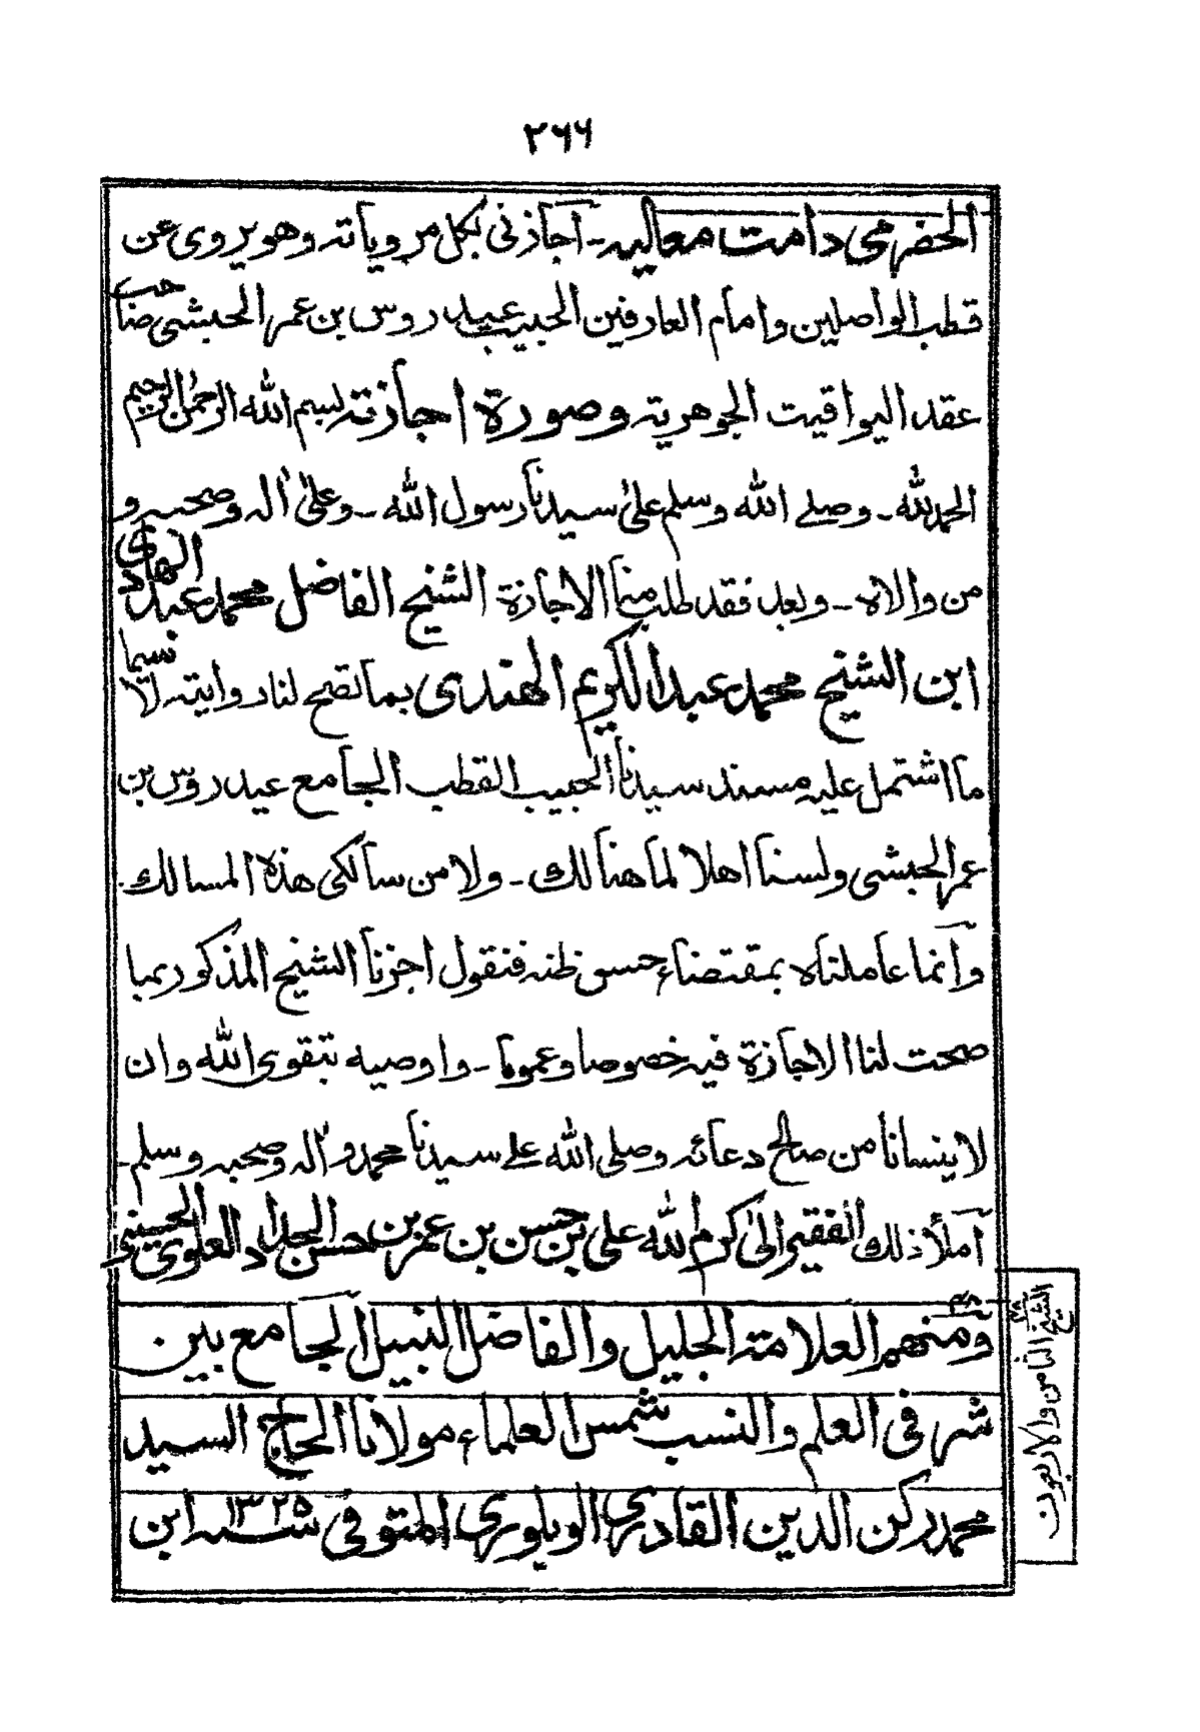 ٢٦٦
الحضرمي دامت معاليه ـ اجازني بكل مروياته وهو يروي عن
قطب الواصلين وامام العارفين الحبيب عيدروس بن عمر الحبشي صاحب
عقد اليواقيت الجوهرية وصورة اجازته بسم الله الرحمٰن الرحيم
الحمد لله ـ وصلے الله وسلم علىٰ سيدنا رسول الله ـ وعلىٰ اٰله وصحبه و
من والاه ـ وبعد فقد طلب منا الاجازة الشيخ الفاضل محمد عبد الهادي
ابن الشيخ محمد عبد الكريم الهندي بما تصح لنا روايته لا سيما
ما اشتمل عليه مسند سيدنا الحبيب القطب الجامع عيدروس بن
عمر الحبشي ولسنا اهلا لما هنالك ـ ولا من سالكي هذه المسالك
وانما عاملناه بمقتضاء حسن ظنه فنقول اجزنا الشيخ المذكور بما
صحت لنا الاجازة فيه خصوصا وعموما ـ واوصيه بتقوى الله وان
لا ينسانا من صالح دعائه وصلى الله علے سيدنا محمد واٰله وصحبه وسلم ـ
املأ ذلك الفقير الىٰ كرم الله علي بن حسن بن عمر بن حسن الحداد العلوي الحسيني
ومنهم العلامة الجليل والفاضل النبيل الجامع بين
شرفي العلم والنسب شمس العلماء مولانا الحاج السيد
محمد ركن الدين القادري الويلوري المتوفي سنه ١٣٢٥ ابن
الشيخ الثامن والاربعون